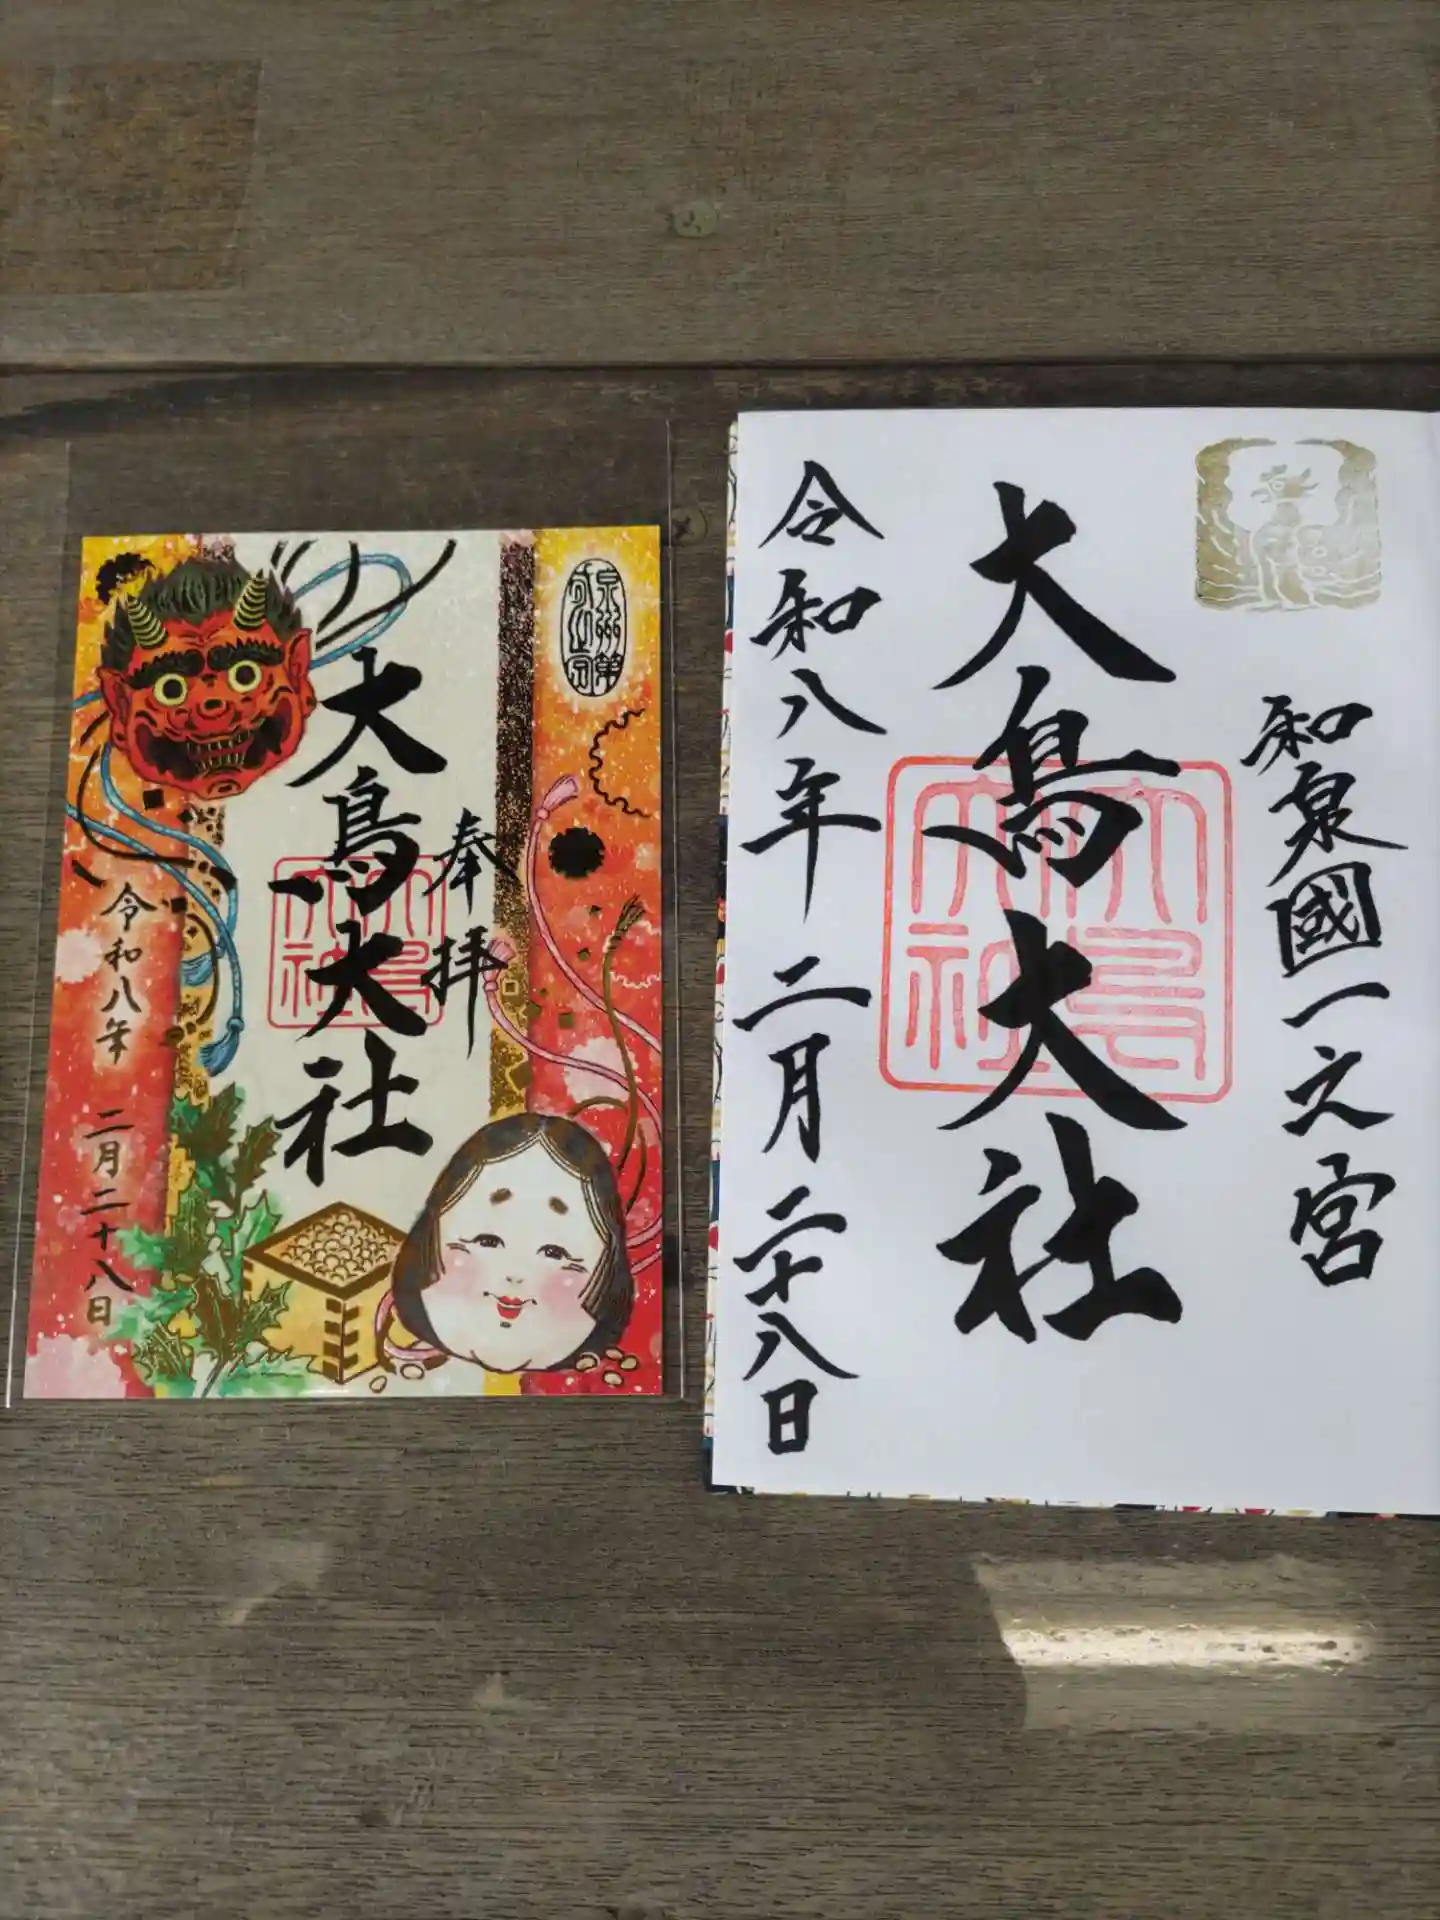 奉拝
大鳥大社
令和八年 二月二十八日
大鳥大社
和泉國一之宮
大鳥大社
大鳥大社
令和八年二月二十八日